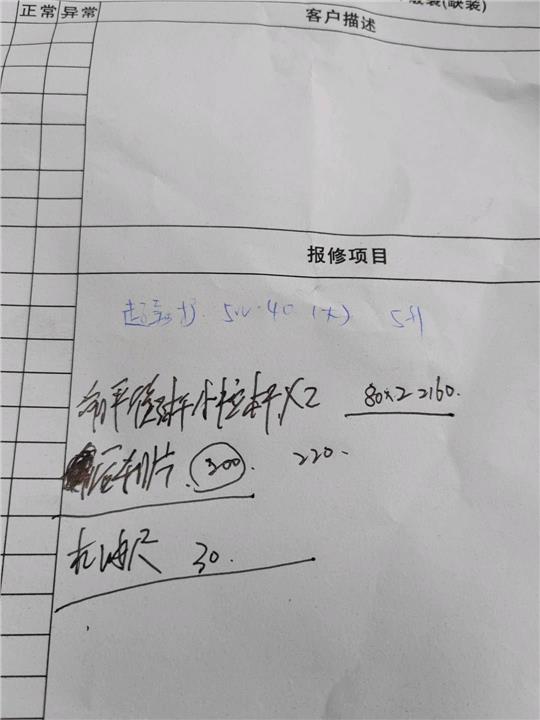 正常 异常
(缺装)
客户描述
报修项目
超动力 5W-40 (大) 5升
前平衡杆小拉杆X2 80x2=160.
后刹片 300. 220.
机油尺 30.